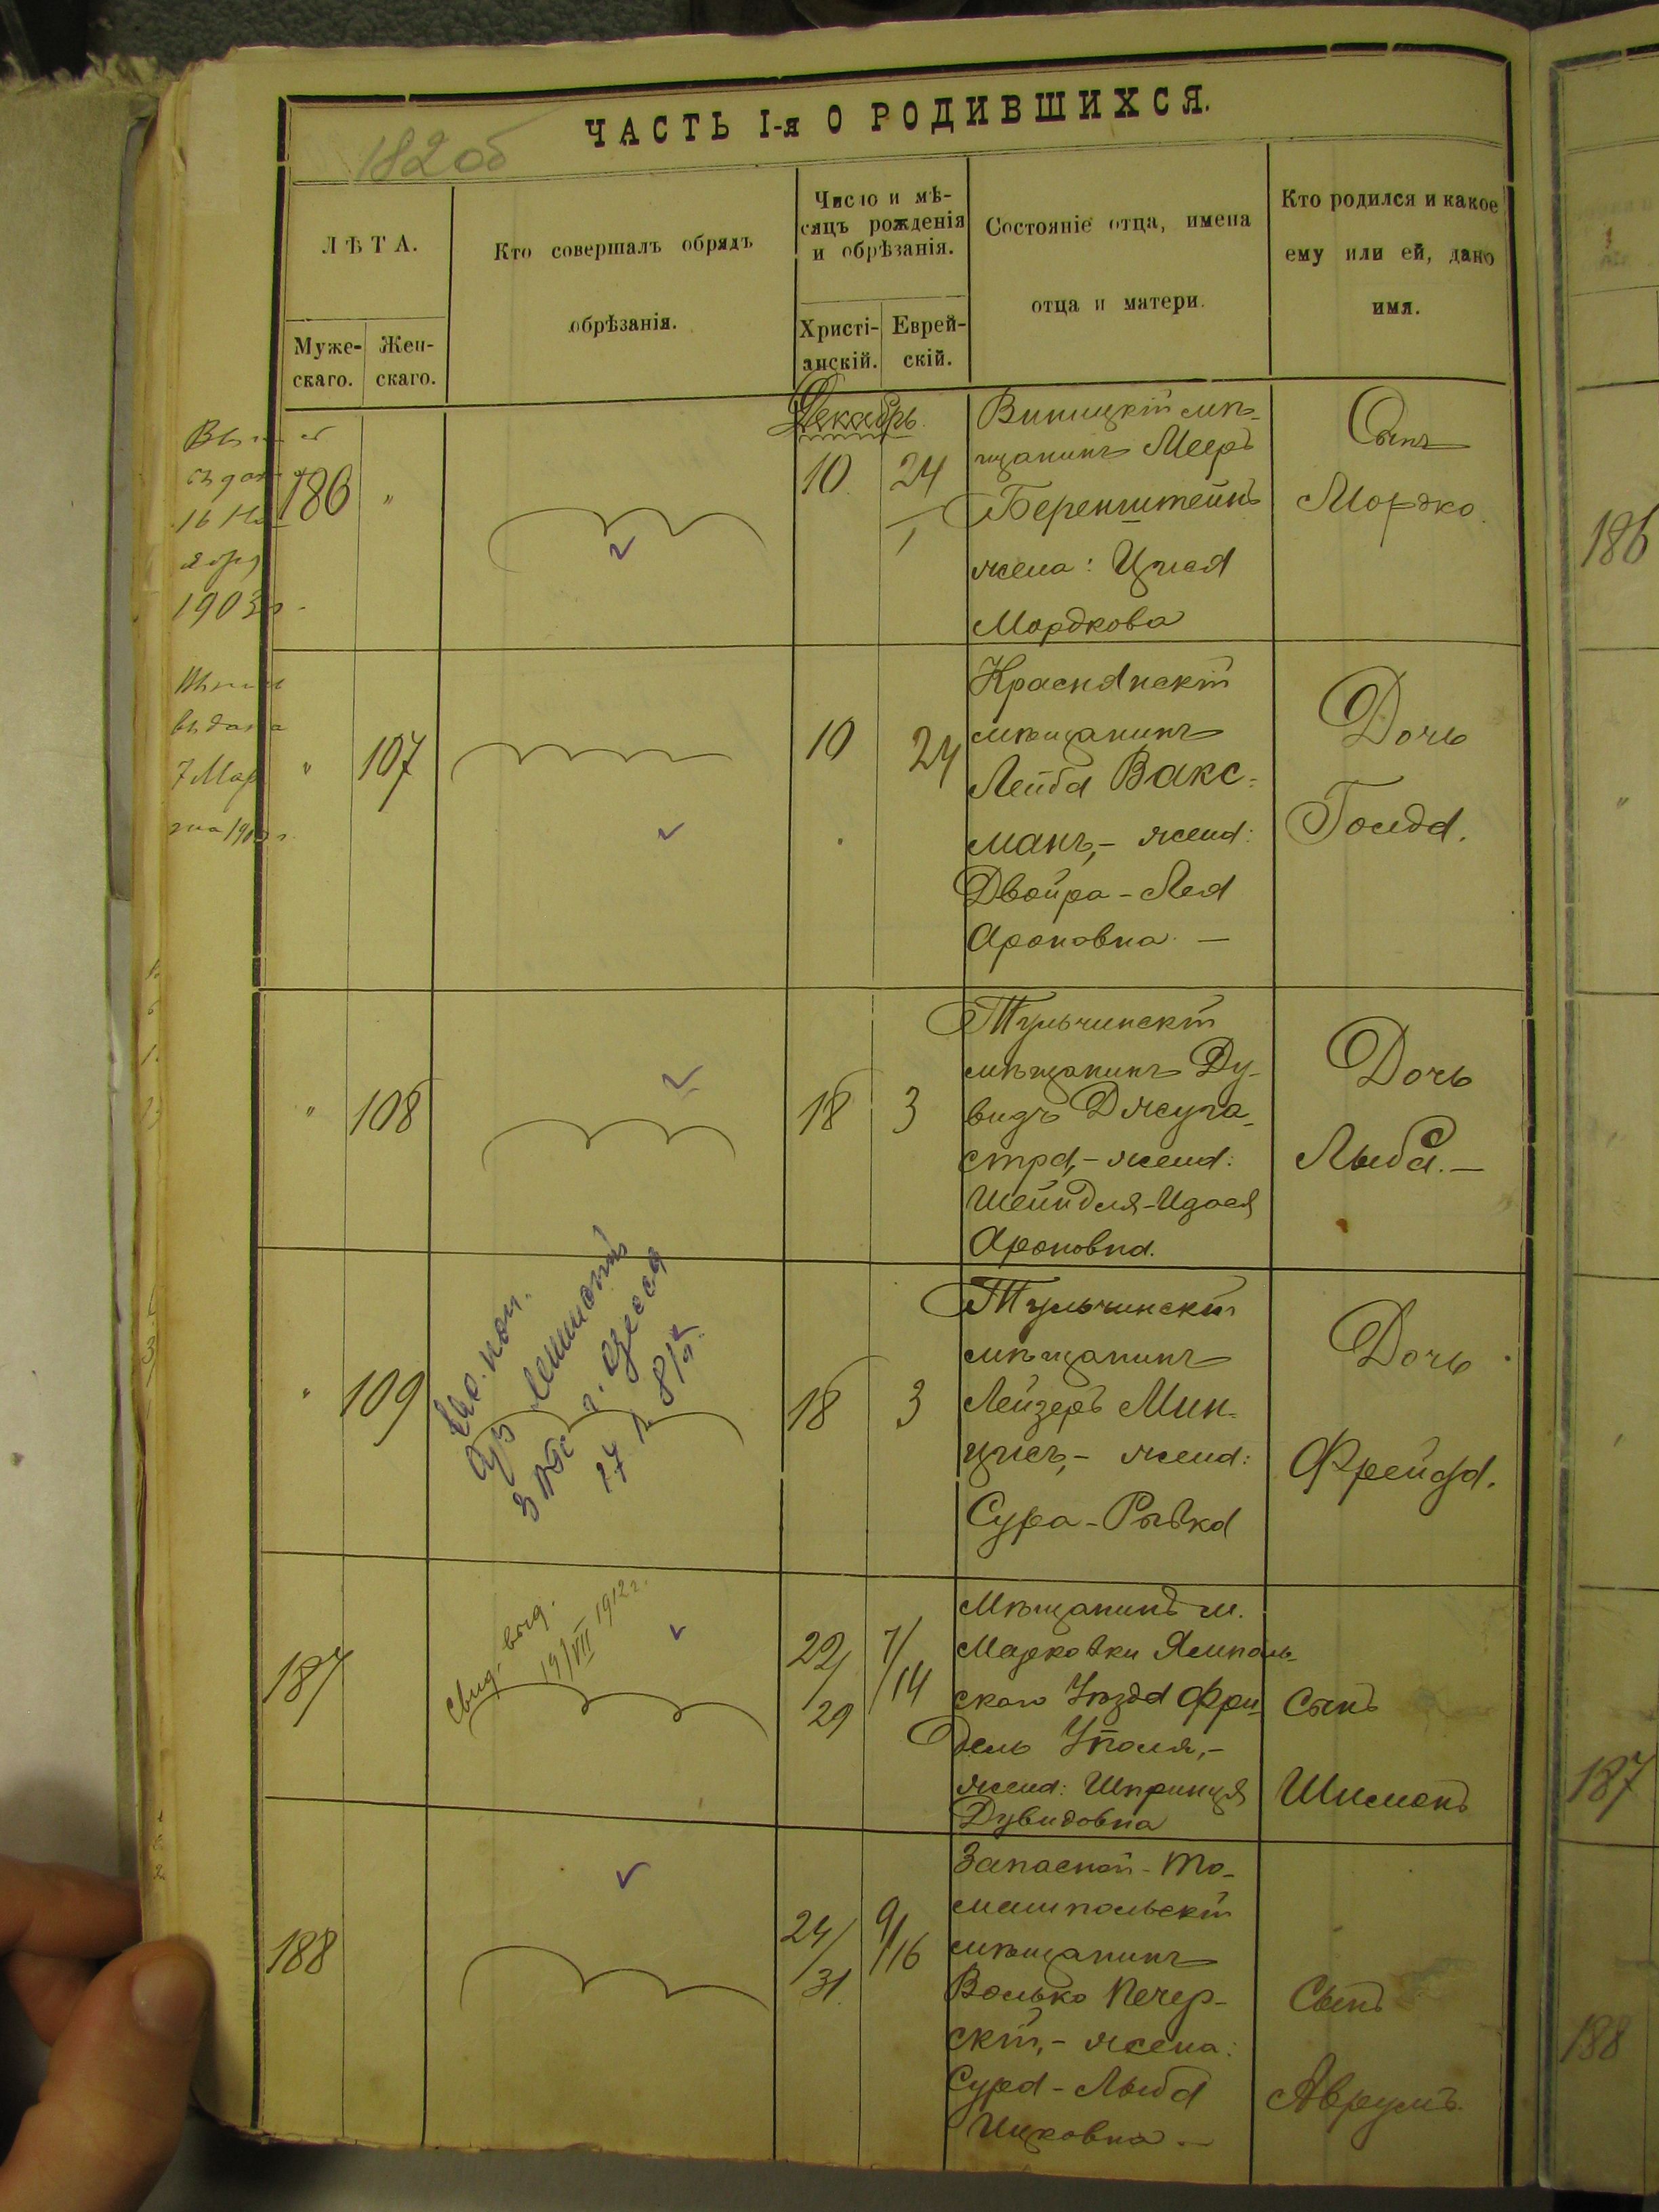 ЧАСТЬ I-я О РОДИВШИХСЯ.
182об
ЛѢТА.
Муже-
скаго.
Жен-
скаго.
Кто совершалъ обрядъ
обрѣзанія.
Число и мѣ-
сяцъ рожденія
и обрѣзанія.
Христі-
анскій.
Еврей-
скій.
Состояніе отца, имена
отца и матери.
Кто родился и какое
ему или ей, дано
имя.
Декабрь
16
1903г.
186 "
10 24
Виницкій мѣ-
щанинъ Мееръ
Беренштейнъ
жена: Цися
Мордкова
Сынъ
Мордко.
186
выдана
7 Мар
" 107
10 24
Краснянскій
мѣщанинъ
Лейба Вакс-
манъ,- жена:
Двойра-Лея
Ароновна. —
Дочь
Голда.
" 108
18 3
Тульчинскій
мѣщанинъ Ду-
видъ Джуга-
стра,- жена:
Шейндля-Идася
Ароновна.
Дочь
Лыба.—
" 109
г. Одесса
Тульчинскій
18 3
мѣщанинъ
Лейзеръ Мин-
цисъ,- жена:
Сура-Рывка
Дочь
Фрейда.
187
свид. выд.
19/VII 1912г.
22/29 7/14
Мѣщанинъ м.
Марковки Ямполь-
скаго Уѣзда Фри-
дель
жена: Шпринця
Дувидовна
Сынъ
Шимонъ
187
188
24/31. 9/16
Запасной-То-
машпольскій
мѣщанинъ
Волько Печер-
скій,- жена:
Сура-Лыба
Ицковна.—
Сынъ
Аврумъ.
188